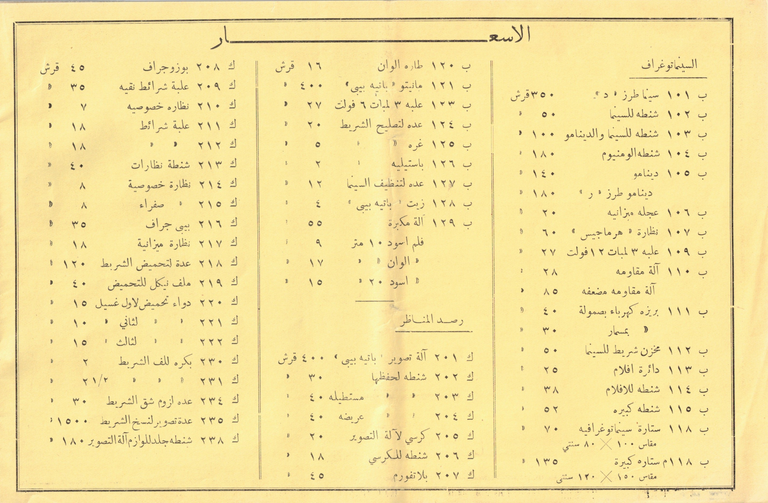 الاسعـــــــار
السينماتوغراف
ب ١٠١ سينما طرز « د » ٣٥٠ قرش
ب ١٠٢ شنطه للسينما ٥٠ «
ب ١٠٣ شنطه للسينما والدينامو ١٠٠ «
ب ١٠٤ شنطه الومنيوم ١٨٠ «
ب ١٠٥ دينامو ١٤٠ «
دينامو طرز « ر » ١٨٠ «
ب ١٠٦ عجله ميزانيه ٢٠ «
ب ١٠٧ نظارة « هرماجيس » ٦٠ «
ب ١٠٩ علبه ٣ لمبات ١٢ فولت ٢٧ «
ب ١١٠ آلة مقاومه ٢٨ «
آلة مقاومه مضعفه ٨٥ «
ب ١١١ بريزه كهرباء بصمولة ٤٠ «
« « بمسمار ٣٠ «
ب ١١٢ مخزن شريط للسينما ٥٠ «
ب ١١٣ دائرة افلام ٢٥ «
ب ١١٤ شنطه للافلام ٣٨ «
ب ١١٥ شنطه كبيره ٥٢ «
ب ١١٨ ستارة سينماتوغرافيه ٧٠ «
مقاس ١٠٠ × ٨٠ سنتي
ب ١١٨م ستاره كبيرة ١٣٥ «
مقاس ١٥٠ × ١٢٠ سنتي
ب ١٢٠ طاره الوان ١٦ قرش
ب ١٢١ مانيتو « باتيه بيبي » ٤٠٠ «
ب ١٢٣ علبه ٣ لمبات ٦ فولت ٢٧ «
ب ١٢٤ عده لتصليح الشريط ٢٠ «
ب ١٢٥ غره « « ٥ «
ب ١٢٦ باستيليه « ٢ «
ب ١٢٧ عده لتنظيف السينما ١٢ «
ب ١٢٨ زيت « باتيه بيبي » ٤ «
ب ١٢٩ آلة مكبرة ٥٥ «
فلم اسود ١٠ متر ٩ «
« الوان « « ١٧ «
« اسود ٢٠ « ١٥ «
رصد المناظر
ك ٢٠١ آلة تصوير « باتيه بيبي » ٤٠٠ قرش
ك ٢٠٢ شنطه لحفظها ٣٠ «
ك ٢٠٣ « « مستطيله ٤٠ «
ك ٢٠٤ « « عريضه ٤٠ «
ك ٢٠٥ كرسي لآلة التصوير ٢٠ «
ك ٢٠٦ شنطه للكرسي ١٨ «
ك ٢٠٧ بلاتفورم ٤٥ «
ك ٢٠٨ بوزوجراف ٤٥ قرش
ك ٢٠٩ علبة شرائط نقيه ٣٥ «
ك ٢١٠ نظاره خصوصيه ٧ «
ك ٢١١ علبة شرائط ١٨ «
ك ٢١٢ « « ١٨ «
ك ٢١٣ شنطة نظارات ٤٠ «
ك ٢١٤ نظارة خصوصية ٨ «
ك ٢١٥ « صفراء ٨ «
ك ٢١٦ بيبي جراف ٣٥ «
ك ٢١٧ نظارة ميزانية ١٨ «
ك ٢١٨ عدة لتحميض الشريط ١٢٠ «
ك ٢١٩ ملف نيكل للتحميض ٤٠ «
ك ٢٢٠ دواء تحميض لاول غسيل ١٥ «
ك ٢٢١ « « لثاني « ١٠ «
ك ٢٢٢ « « لثالث « ١٥ «
ك ٢٣٠ بكره للف الشريط ٢ «
ك ٢٣١ « « « ٢١/٢ «
ك ٢٣٤ عده لزوم شق الشريط ٣٠ «
ك ٢٣٥ عدة تصوير لنسخ الشريط ١٥٠٠ «
ك ٢٣٨ شنطه جلد للوازم آلة التصوير ١٨٠ «